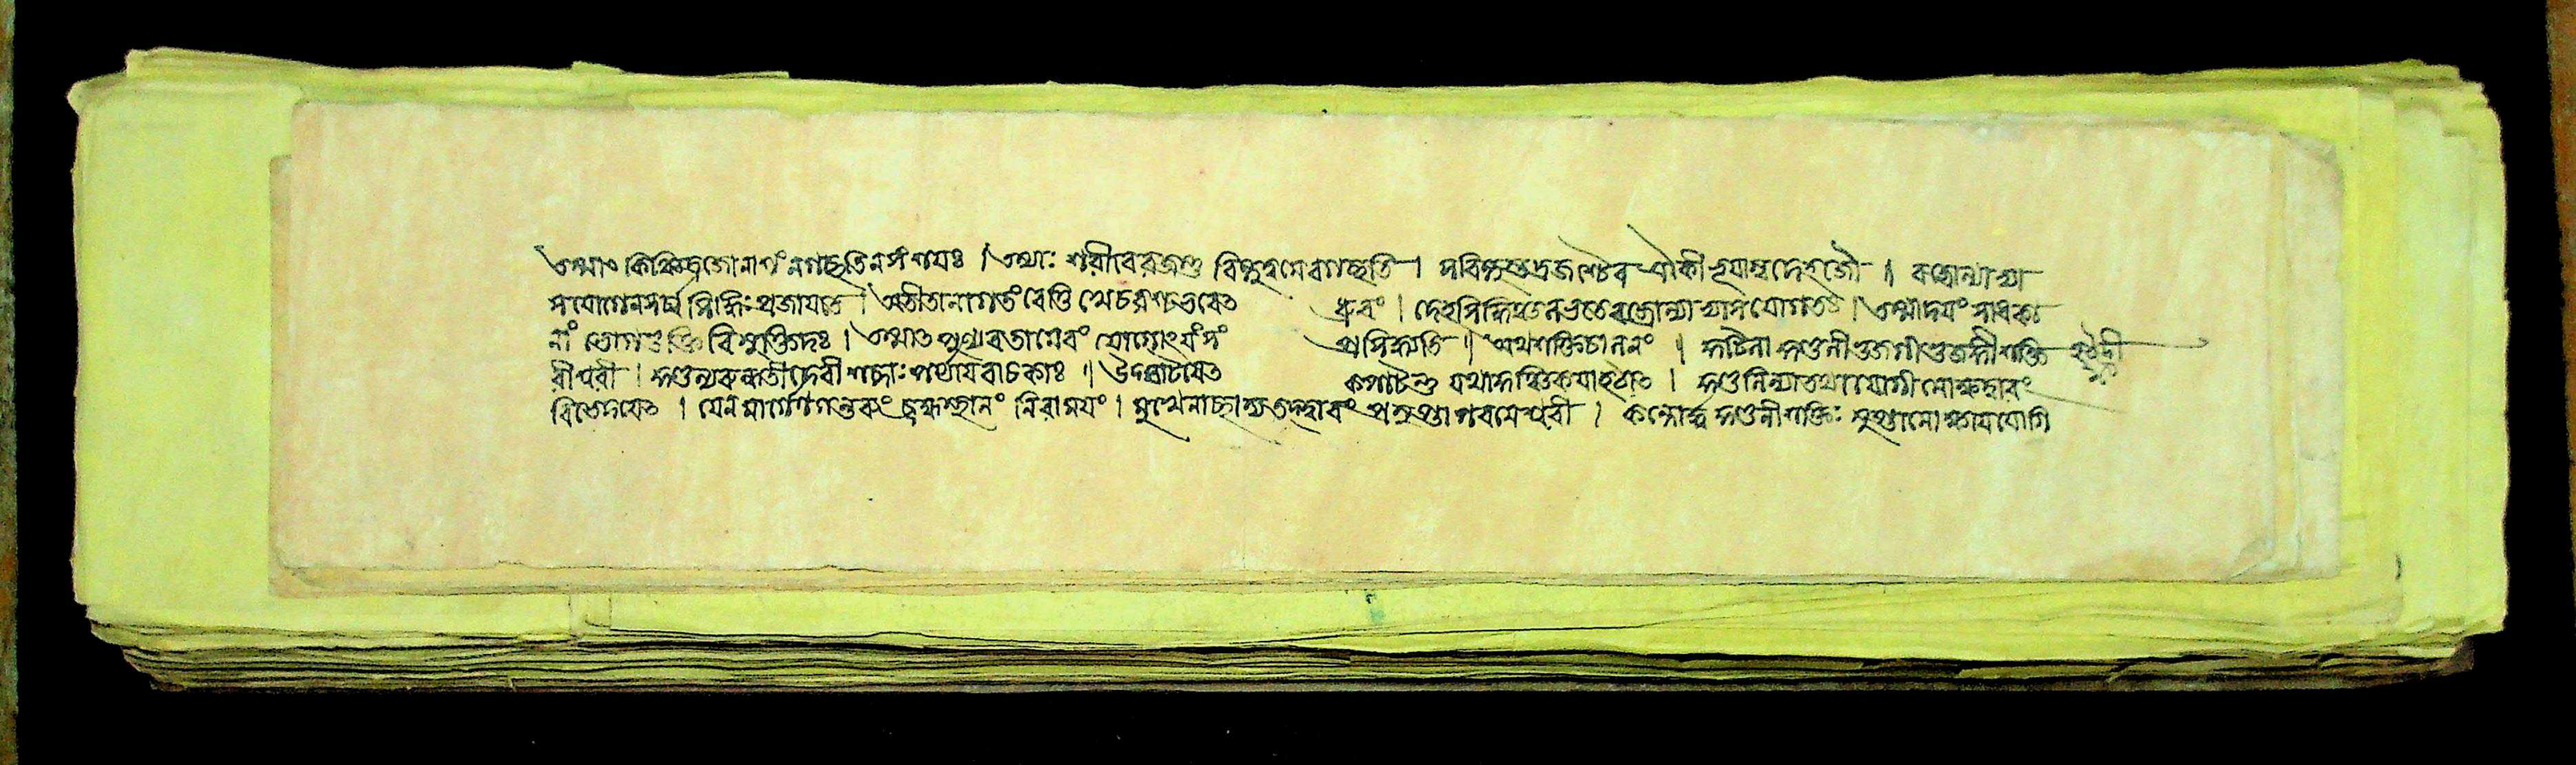 তস্যাঃ কিঞ্চিদ্রজোনাশং নগচ্ছতিনসংশযঃ । তস্যাঃ শরীরেরজস্তু বিন্দুত্বমেবগচ্ছতি । সবিন্দুস্তদ্রজশ্চৈব একীভূযস্বদেহজৌ । বজ্রোল্যাভ্যা
সযোগেনসর্ব্বসিদ্ধিঃ প্রজাযতে । অতীতানাগতংবেত্তি খেচরশ্চভবেত ধ্রুবং । দেহসিদ্ধিঞ্চলভতেবজ্রোল্যাভ্যাসযোগতঃ । তস্মাদযং সাধকা
নাং ভোগভুক্তিবিমুক্তিদঃ । তস্মাত পুণ্যবতামেবং যোগোঽযং সং প্রসিদ্ধ্যতি । অথশক্তিচালনং । কুটিলা কুণ্ডলীভুজগীভুজঙ্গীশক্তি
রীশ্বরী । কুণ্ডল্যরুন্ধতীদেবী শব্দাঃ পর্যাযবাচকাঃ । উদ্ঘাটযেত কপাটন্তু যথাকুঞ্চিকযাহঠাত । কুণ্ডলিন্যাতথাযোগী মোক্ষদ্বারং
বিভেদযেত । যেনমার্গেণগন্তব্যং ব্রহ্মস্থানং নিরামযং । মুখেনাচ্ছাদ্যতদ্দ্বারং প্রসুপ্তাপরমেশ্বরী । কন্দোর্দ্ধকুণ্ডলীশক্তিঃ সুপ্তামোক্ষাযযোগি